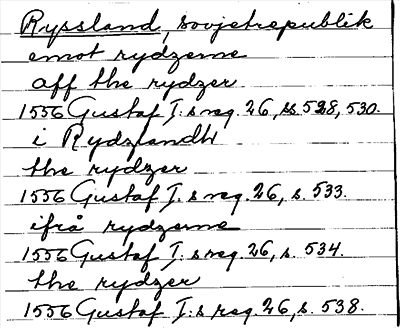 Ryssland, sovjetrepublik
emot rydzerne
aff the rydzer
1556 Gustaf I:s reg. 26, s. 528, 530.
i Rydzlandh
the rydzer
1556 Gustaf I:s reg. 26, s. 533.
ifrå rydzerne
1556 Gustaf I:s reg. 26, s. 534.
the rydzer
1556 Gustaf I:s reg. 26, s. 538.